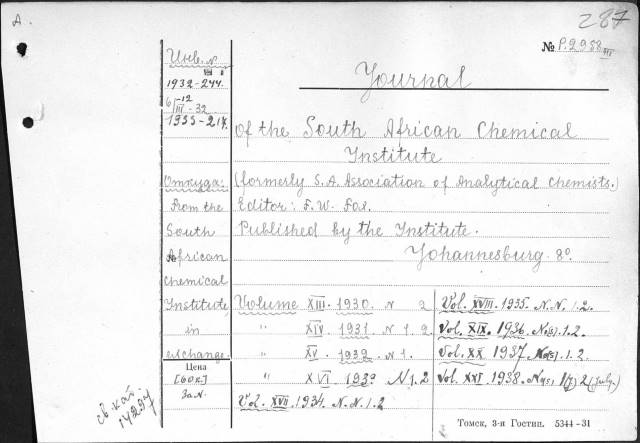 А.
287
№ P.2958 III
Инв. №
1932-244.
6/III-32
1933-217.
Journal
of the South African Chemical
Institute
(formerly S.A. Association of Analytical Chemists.)
Editor: F. W. Fox.
Published by the Institute.
Johannesburg. 8º.
Откуда:
From the
South
African
Chemical
Institute
in
exchange.
Цена
[60к.]
За №.
Volume XIII. 1930. N 2
" XIV. 1931. N 1. 2
" XV. 1932. N 1.
" XVI. 1933 N 1.2
Vol. XVII. 1934. N.N. 1.2
Vol. XVIII. 1935. N.N. 1.2.
Vol. XIX. 1936. No(s). 1.2.
Vol. XX. 1937 No(s). 1.2.
Vol. XXI. 1938. Nos. 1, 2 (July.)
св-кат
14297
Томск, 3-я Гостип. 5344-31